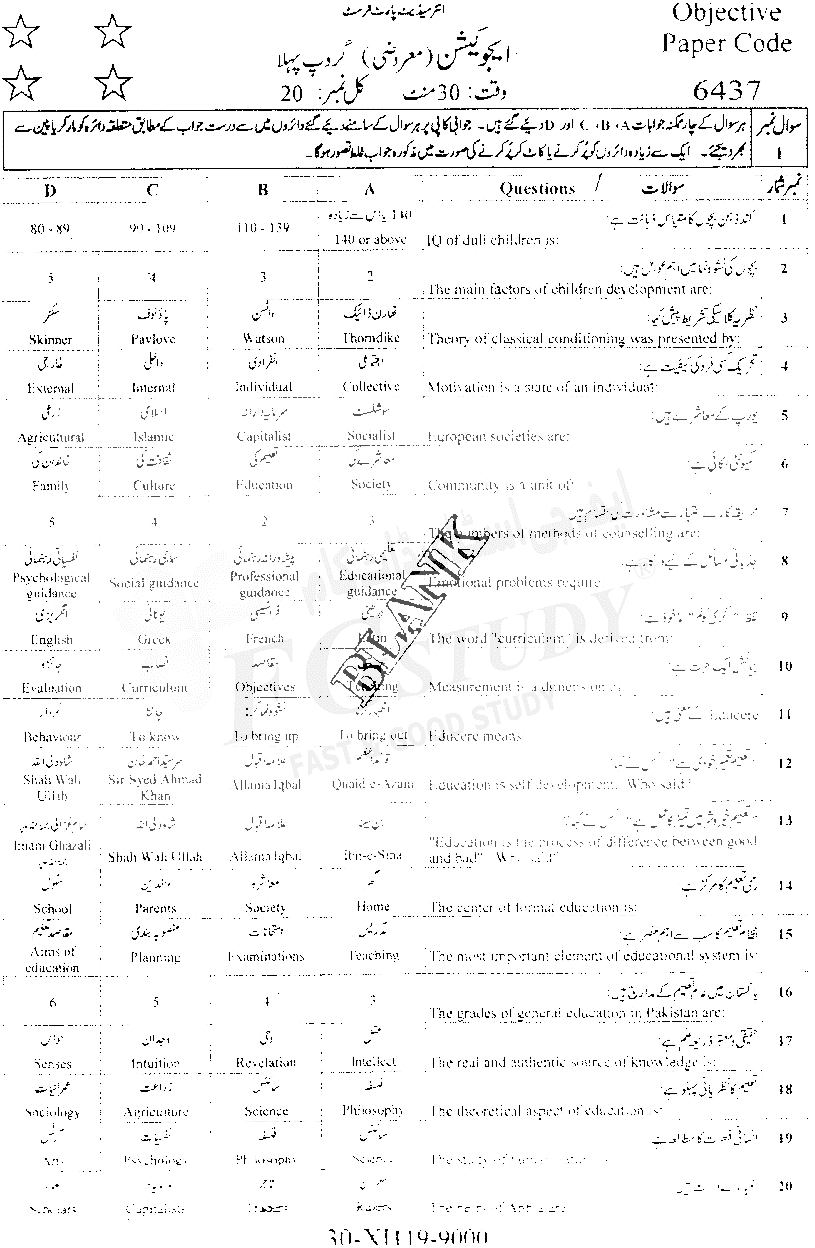 انٹرمیڈیٹ پارٹ فرسٹ
Objective
Paper Code
6437
ایجوکیشن (معروضی) گروپ پہلا
وقت: 30 منٹ کل نمبر: 20
سوال نمبر 1
ہر سوال کے چار ممکنہ جوابات A، B، C اور D دیئے گئے ہیں۔ جوابی کاپی پر ہر سوال کے سامنے دیئے گئے دائروں میں سے درست جواب کے مطابق متعلقہ دائرہ کو مارکر یا پین سے
بھر دیجئے۔ ایک سے زیادہ دائروں کو پُر کرنے یا کاٹ کر پُر کرنے کی صورت میں مذکورہ جواب غلط تصور ہوگا۔
D C B A Questions / سوالات نمبر شمار
کند ذہن بچوں کا مقیاس ذہانت ہے: 1
80 - 89 90 - 109 110 - 139 140 یا اس سے زیادہ
140 or above IQ of dull children is:
بچوں کی نشوونما میں اہم عوامل ہیں: 2
5 4 3 2 The main factors of children development are:
سکنر پاولوف واٹسن تھارن ڈائیک نظریہ کلاسیکی تشریط پیش کیا: 3
Skinner Pavlove Watson Thorndike Theory of classical conditioning was presented by:
خارجی داخلی انفرادی اجتماعی تحریک کسی فرد کی کیفیت ہے: 4
External Internal Individual Collective Motivation is a state of an individual:
زرعی اسلامی سرمایہ دارانہ سوشلسٹ یورپ کے معاشرے ہیں: 5
Agricultural Islamic Capitalist Socialist European societies are:
خاندان کی ثقافت کی تعلیم کی معاشرے کی کمیونٹی اکائی ہے: 6
Family Culture Education Society Community is a unit of:
7
5 4 2 3 The numbers of methods of counselling are:
نفسیاتی رہنمائی سماجی رہنمائی پیشہ ورانہ رہنمائی تعلیمی رہنمائی 8
Psychological guidance Social guidance Professional guidance Educational guidance Emotional problems require
انگریزی یونانی فرانسیسی 9
English Greek French The word "curriculum" is derived from:
جائزہ نصاب مقاصد 10
Evaluation Curriculum Objectives Measurement is a
جاننا Educere کے معنی ہیں: 11
Behaviour To know To bring up To bring out Educere means
شاہ ولی اللہ سرسید احمد خان علامہ اقبال قائداعظم 12
Shah Wali Ullah Sir Syed Ahmad Khan Allama Iqbal Quaid-e-Azam Education is self development. Who said?
شاہ ولی اللہ علامہ اقبال ابن سینا 13
Imam Ghazali Shah Wali Ullah Allama Iqbal Ibn-e-Sina "Education is the process of difference between good and bad" Who said?
سکول والدین معاشرہ گھر رسمی تعلیم کا مرکز ہے 14
School Parents Society Home The center of formal education is:
مقاصد تعلیم منصوبہ بندی امتحانات تدریس نظام تعلیم کا سب سے اہم عنصر ہے: 15
Aims of education Planning Examinations Teaching The most important element of educational system is:
پاکستان میں عام تعلیم کے مدارج ہیں: 16
6 5 4 3 The grades of general education in Pakistan are:
حواس وجدان وحی عقل حقیقی و مستند ذریعہ علم ہے: 17
Senses Intuition Revelation Intellect The real and authentic source of knowledge is:
عمرانیات زراعت سائنس فلسفہ تعلیم کا نظریاتی پہلو ہے: 18
Sociology Agriculture Science Philosophy The theoretical aspect of education is:
نفسیات فلسفہ سائنس انسانی فطرت کا مطالعہ ہے 19
Arts Psychology Philosophy Science The study of
20
Scholars Capitalists Traders Rulers The heirs of
30-XI119-9000
BLANK
EG STUDY
FAST & GOOD STUDY